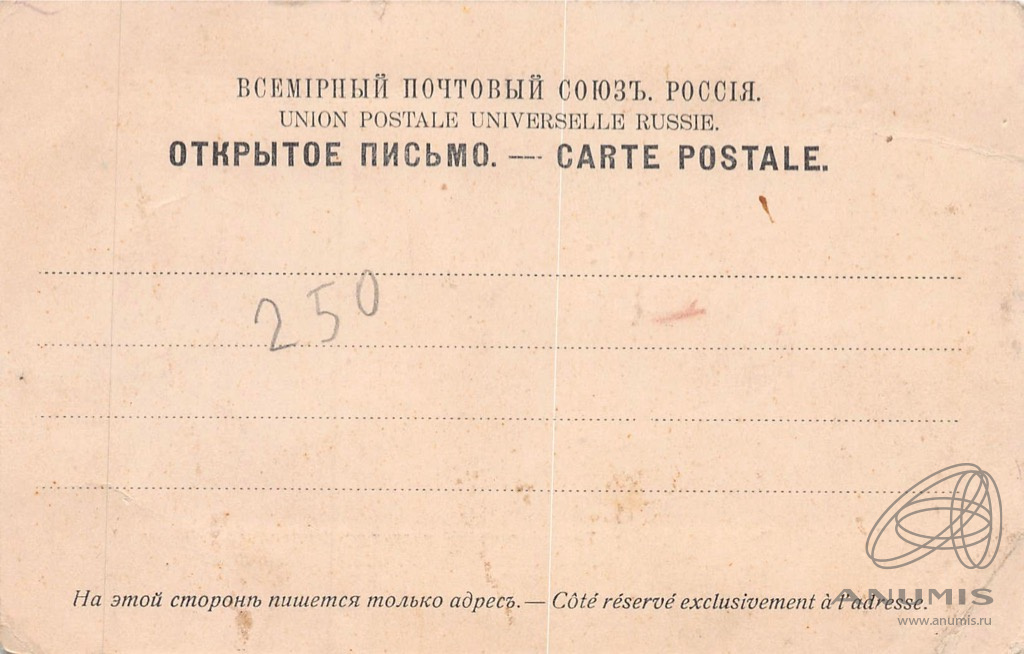 ВСЕМІРНЫЙ ПОЧТОВЫЙ СОЮЗЪ. РОССІЯ.
UNION POSTALE UNIVERSELLE RUSSIE.
ОТКРЫТОЕ ПИСЬМО. — CARTE POSTALE.
250
На этой сторонѣ пишется только адресъ. — Côté réservé exclusivement à l'adresse.
ANUMIS
www.anumis.ru